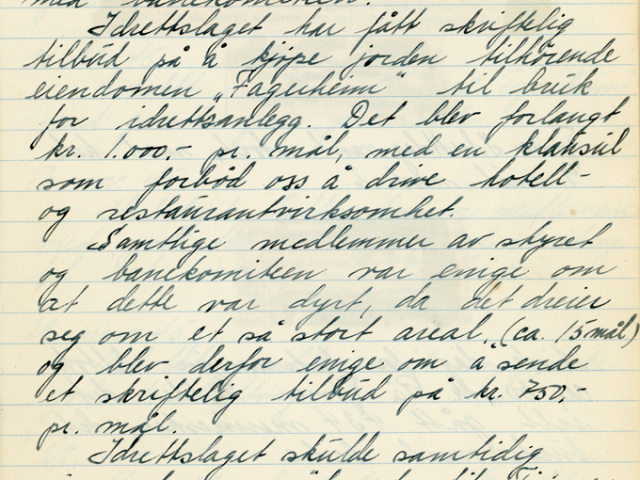 med banekomiteen.
Idrettslaget har fått skriftelig
tilbud på å kjøpe jorden tilhörende
eiendomen „Fagerheim" til bruk
for idrettsanlegg. Det blev forlangt
kr. 1.000,- pr. mål, med en klausul
som forbød oss å drive hotell-
og restaurantvirksomhet.
Samtlige medlemmer av styret
og banekomiteen var enige om
at dette var dyrt, da det dreier
seg om et så stort areal, (ca. 15 mål)
og blev derfor enige om å sende
et skriftelig tilbud på kr. 750,-
pr. mål.
Idrettslaget skulde samtidig